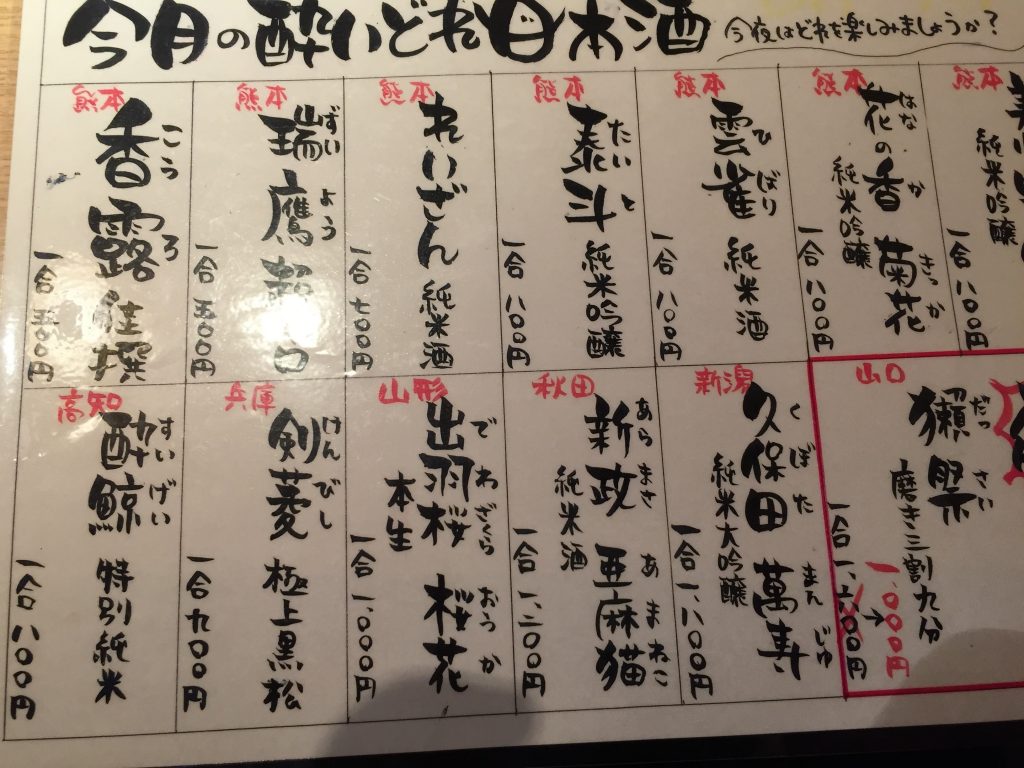 今月の酔いどれ日本酒
今夜はどれを楽しみましょうか?
熊本
純米吟醸
一合 八〇〇円
熊本
花の香 菊花
はな か きっか
純米吟醸
一合 八〇〇円
熊本
雲雀 純米酒
ひばり
一合 八〇〇円
熊本
泰斗 純米吟醸
たいと
一合 八〇〇円
熊本
れいざん 純米酒
一合 七〇〇円
熊本
瑞鷹
ずいよう
一合 五〇〇円
熊本
香露
こうろ
一合 五〇〇円
山口
獺祭
だっさい
磨き三割九分
一合
1.000円
新潟
久保田 萬寿
くぼた まんじゅ
純米大吟醸
一合 一、八〇〇円
秋田
新政 亜麻猫
あらまさ あまねこ
純米酒
一合 一、二〇〇円
山形
出羽桜 桜花
でわざくら おうか
本生
一合 一、〇〇〇円
兵庫
剣菱 極上黒松
けんびし
一合 九〇〇円
高知
酔鯨 特別純米
すいげい
一合 八〇〇円